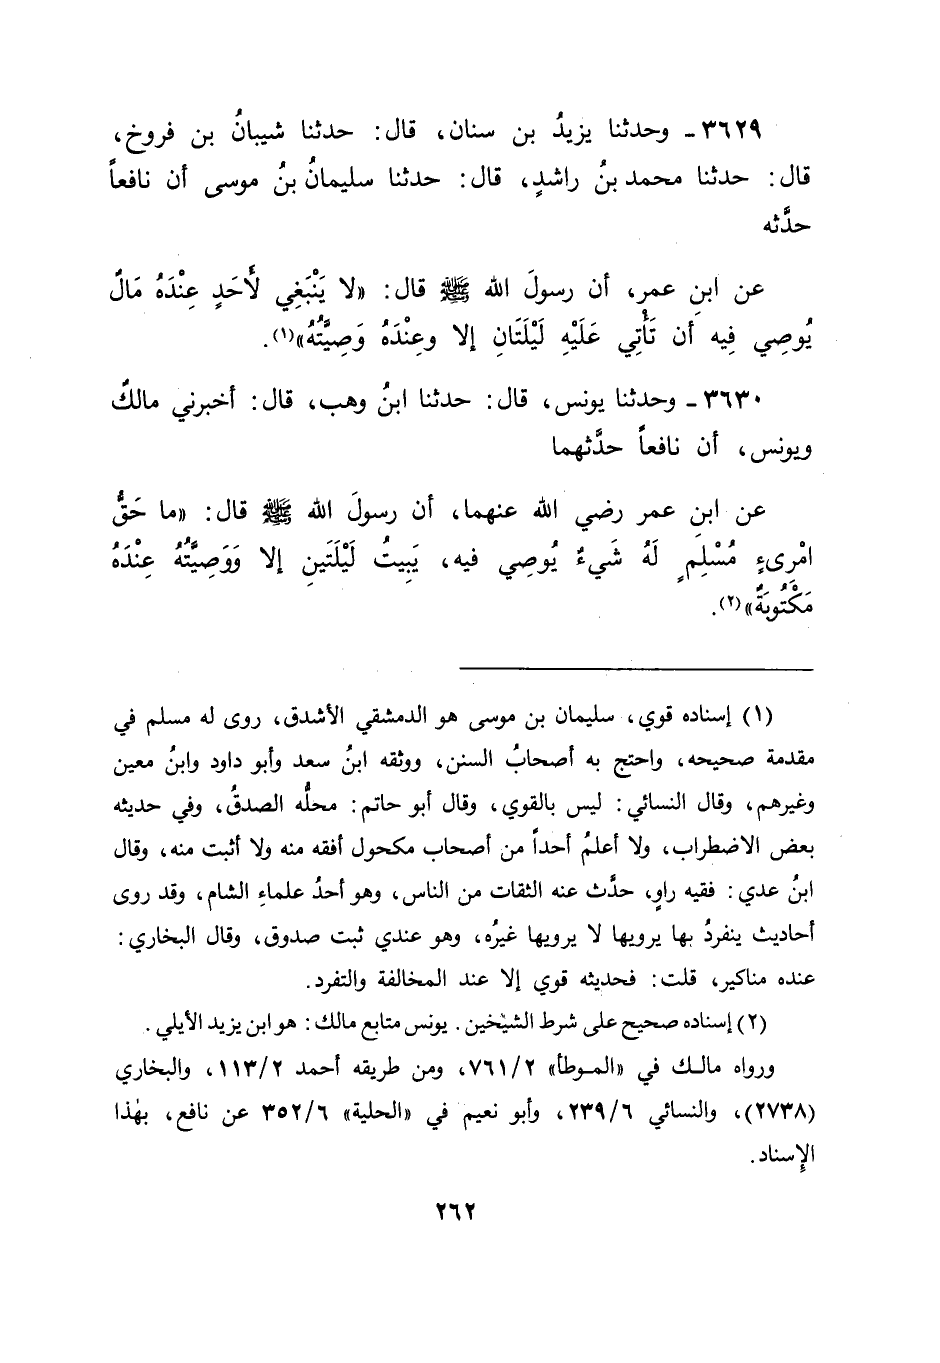 ٣٦٢٩ ـ وحدثنا يزيدُ بن سنان، قال: حدثنا شيبانُ بن فروخ،
قال: حدثنا محمد بنُ راشدٍ، قال: حدثنا سليمانُ بنُ موسى أن نافعاً
حدَّثه
عن ابنِ عمر، أن رسولَ الله ﷺ قال: «لا يَنْبَغِي لأَحَدٍ عِنْدَهُ مَالٌ
يُوصِي فِيه أن تَأْتِي عَلَيْهِ لَيْلَتَانِ إلا وعِنْدَهُ وَصِيَّتُهُ»(١).
٣٦٣٠ ـ وحدثنا يونس، قال: حدثنا ابنُ وهب، قال: أخبرني مالكٌ
ويونس، أن نافعاً حدَّثهما
عن ابنِ عمر رضي الله عنهما، أن رسولَ الله ﷺ قال: «ما حَقُّ
امْرىءٍ مُسْلِمٍ لَهُ شَيءٌ يُوصِي فيه، يَبِيتُ لَيْلَتَينِ إلا وَوَصِيَّتُهُ عِنْدَهُ
مَكْتُوبَةٌ»(٢).
(١) إسناده قوي، سليمان بن موسى هو الدمشقي الأشدق، روى له مسلم في
مقدمة صحيحه، واحتج به أصحابُ السنن، ووثقه ابنُ سعد وأبو داود وابنُ معين
وغيرهم، وقال النسائي: ليس بالقوي، وقال أبو حاتم: محلُّه الصدقُ، وفي حديثه
بعض الاضطراب، ولا أعلمُ أحداً من أصحاب مكحول أفقه منه ولا أثبت منه، وقال
ابنُ عدي: فقيه راوٍ، حدَّث عنه الثقات من الناس، وهو أحدُ علماءِ الشام، وقد روى
أحاديث ينفردُ بها يرويها لا يرويها غيرُه، وهو عندي ثبت صدوق، وقال البخاري:
عنده مناكير، قلت: فحديثه قوي إلا عند المخالفة والتفرد.
(٢) إسناده صحيح على شرط الشيخين. يونس متابع مالك: هو ابن يزيد الأيلي.
ورواه مالك في «الموطأ» ٧٦١/٢، ومن طريقه أحمد ١١٣/٢، والبخاري
(٢٧٣٨)، والنسائي ٢٣٩/٦، وأبو نعيم في «الحلية» ٣٥٢/٦ عن نافع، بهٰذا
الإِسناد.
٢٦٢